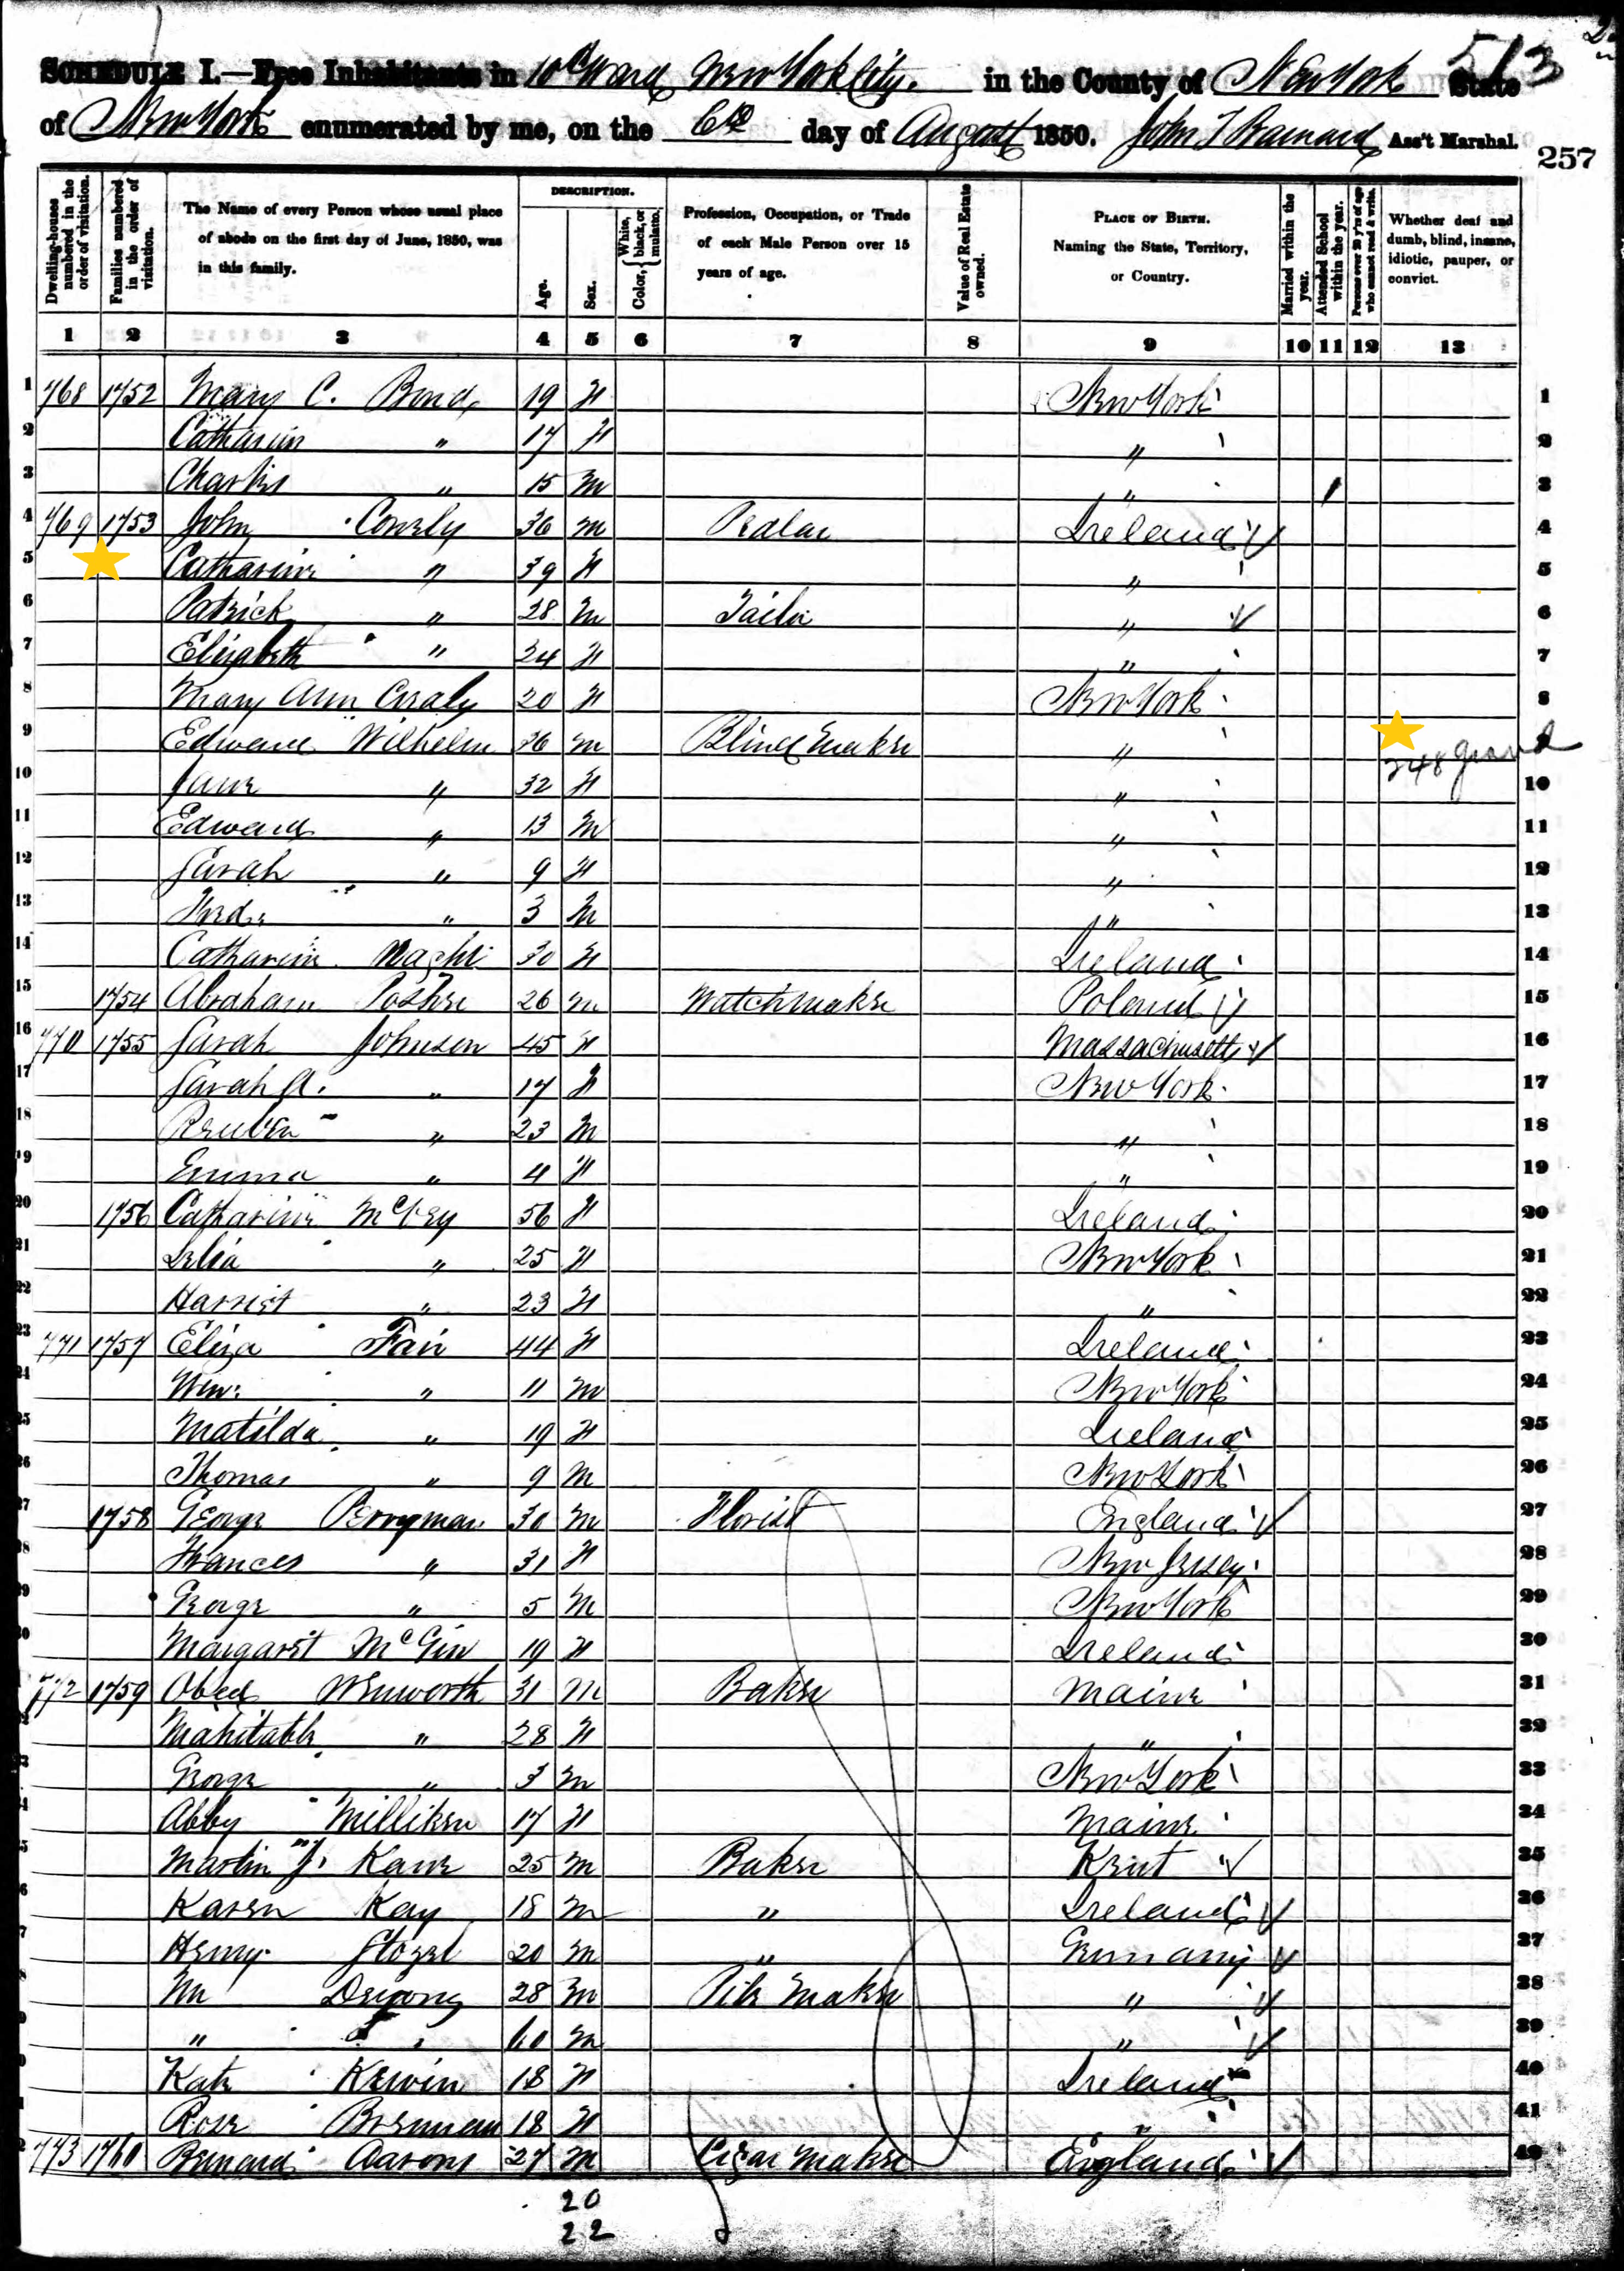 513
SCHEDULE I.—Free Inhabitants in 10th Ward New York City. in the County of New York State
of New York enumerated by me, on the 6th day of August 1850. Ass't Marshal.
257
Dwelling-houses numbered in the order of visitation.
Families numbered in the order of visitation.
The Name of every Person whose usual place of abode on the first day of June, 1850, was in this family.
DESCRIPTION.
Age.
Sex.
Color, { White, black, or mulatto.
Profession, Occupation, or Trade of each Male Person over 15 years of age.
Value of Real Estate owned.
PLACE OF BIRTH. Naming the State, Territory, or Country.
Married within the year.
Attended School within the year.
Persons over 20 y'rs of age who cannot read & write.
Whether deaf and dumb, blind, insane, idiotic, pauper, or convict.
1 2 3 4 5 6 7 8 9 10 11 12 13
1 768 1752 Mary C. Bond 19 F New York 1
2 Catharine " 17 F " 2
3 Charles " 15 M " 3
4 769 1753 John 36 M Pedlar Ireland 4
5 Catharine " 39 F " 5
6 Patrick " 28 M Tailor " 6
7 Elizabeth " 24 F " 7
8 Mary Ann 20 F New York 8
9 Edward Wilhelm 36 M Blind Maker " 9
248 Grand
10 Jane " 32 F " 10
11 Edward " 13 M " 11
12 Sarah " 9 F " 12
13 " 3 M " 13
14 Catharine 30 F Ireland 14
15 1754 Abraham 26 M Watchmaker Poland 15
16 770 1755 Sarah Johnson 45 F Massachusetts 16
17 Sarah A. " 17 F New York 17
18 Reuben " 23 M " 18
19 Emma " 4 F " 19
20 1756 Catharine McVey 56 F Ireland 20
21 " 25 F New York 21
22 Harriet " 23 F " 22
23 771 1757 Eliza Fair 44 F Ireland 23
24 Wm. " 11 M New York 24
25 Matilda " 19 F Ireland 25
26 Thomas " 9 M New York 26
27 1758 George Perryman 30 M Florist England 27
28 Frances " 31 F New Jersey 28
29 George " 5 M New York 29
30 Margaret McGin 19 F Ireland 30
772 1759 Obed Wenworth 31 M Baker Maine 31
Mahitable " 28 F " 32
George " 3 M New York 33
Abby Milliken 17 F Maine 34
Martin J. Kane 25 M Baker Kent 35
Karen Kay 18 M " Ireland 36
Henry 20 M " Germany 37
28 M Maker " 38
" " 60 M " 39
Kate Kerwin 18 F Ireland 40
Rose Brennan 18 F " 41
773 1760 Bernard Aarons 27 M Cigar Maker England 42
20
22